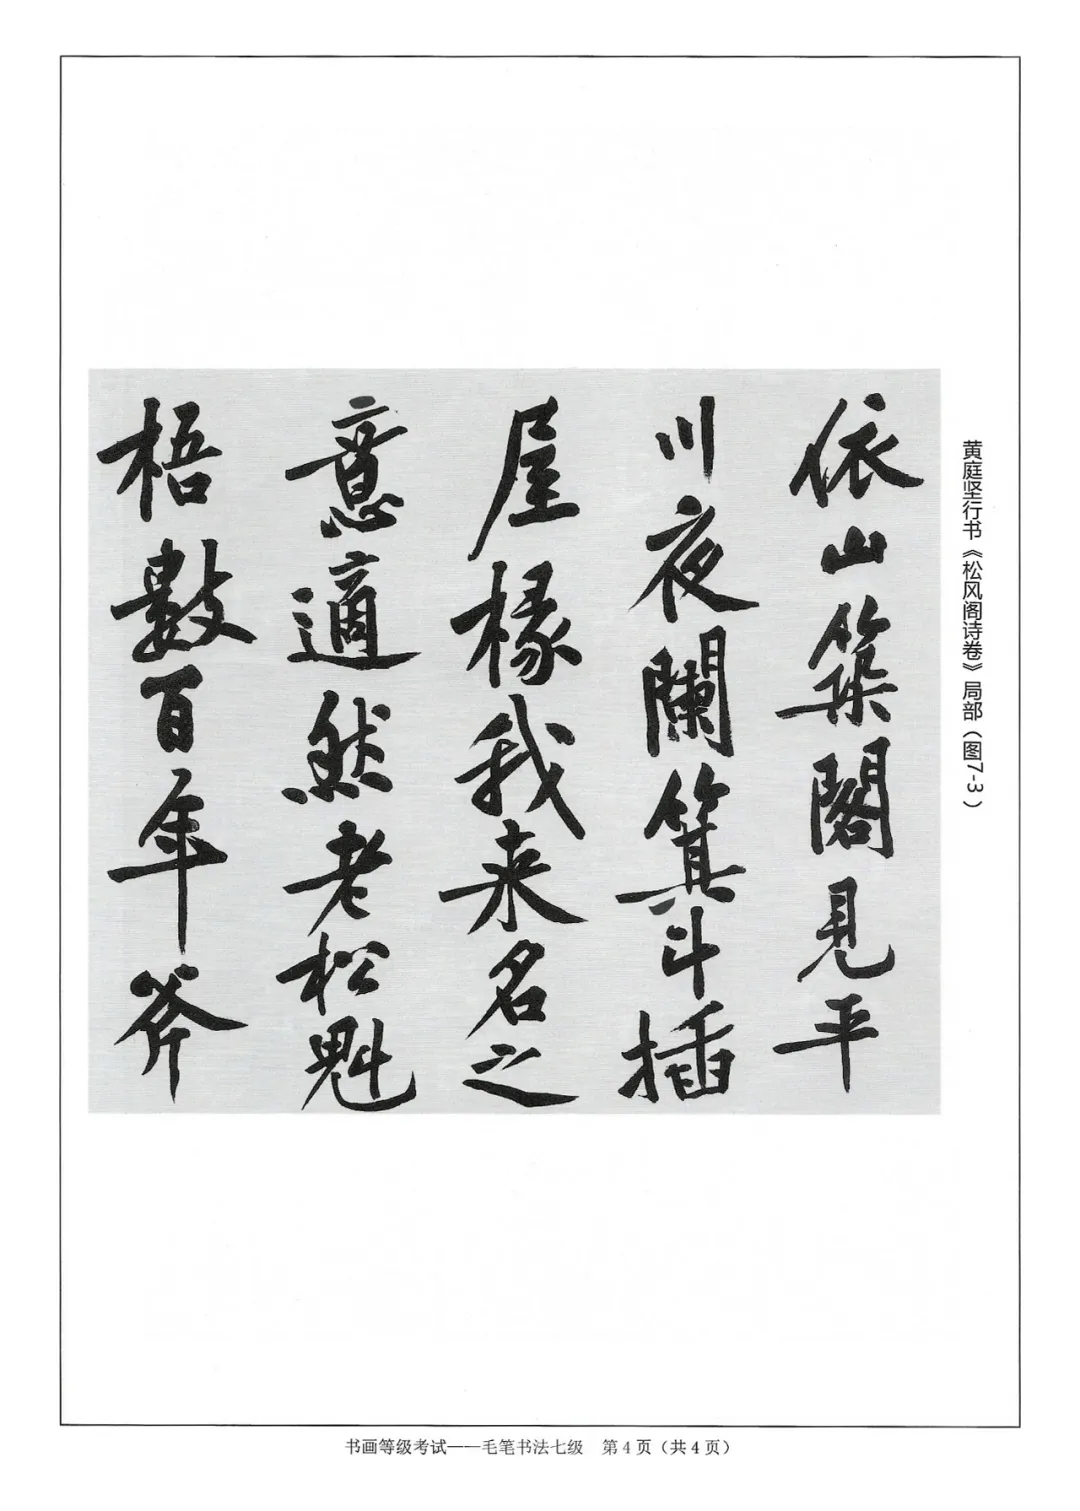 依山築閣見平
川夜闌箕斗插
屋椽我来名之
意適然老松魁
梧數百年斧
黄庭坚行书《松风阁诗卷》局部（图7-3）
书画等级考试——毛笔书法七级 第4页（共4页）